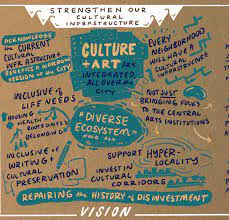 STRENGTHEN OUR
CULTURAL
INFRASTRUCTURE
ACKNOWLEDGE
the CURRENT
CULTURAL
INFRASTRUCTURE
BENEFITS A NARROW
VERSION of the CITY
CULTURE
+ ART ARE
INTEGRATED,
ALL OVER the
CITY
EVERY
NEIGHBORHOOD
WILL HAVE A
CULTURAL
INFRASTRUCTURE
INCLUSIVE of
LIFE NEEDS
HOUSING
HEALTH
ROOTEDNESS
BELONGING
NOT JUST
BRINGING FOLKS
TO the CENTRAL
ARTS INSTITUTIONS
A DIVERSE
ECOSYSTEM
HOLD ALL
INCLUSIVE of
WRITING +
CULTURAL
PRESERVATION
SUPPORT HYPER-
LOCALITY
INVEST in
CULTURAL
CORRIDORS
REPAIRING the HISTORY of DISINVESTMENT
VISION